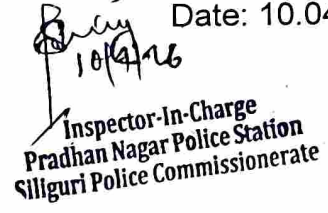 Date: 10.04
10/4/26
Inspector-In-Charge
Pradhan Nagar Police Station
Siliguri Police Commissionerate